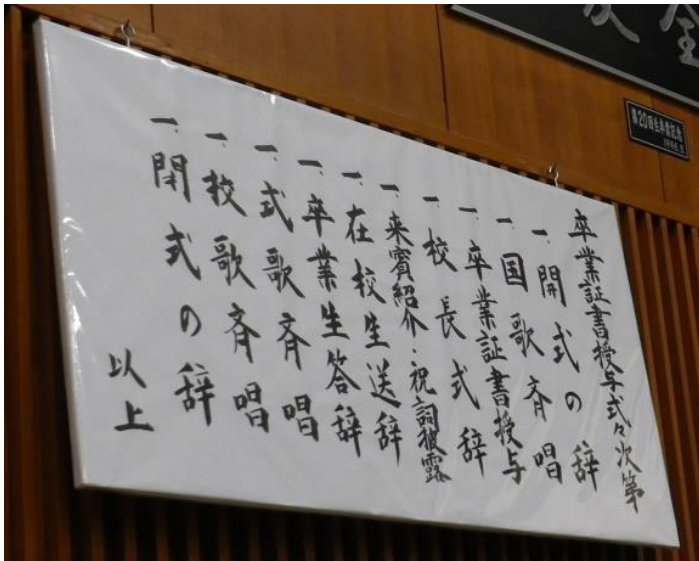 卒業証書授与式々次第
一、開式の辞
一、国歌斉唱
一、卒業証書授与
一、校長式辞
一、来賓紹介・祝詞披露
一、在校生送辞
一、卒業生答辞
一、式歌斉唱
一、校歌斉唱
一、閉式の辞
以上
第20回生卒業記念